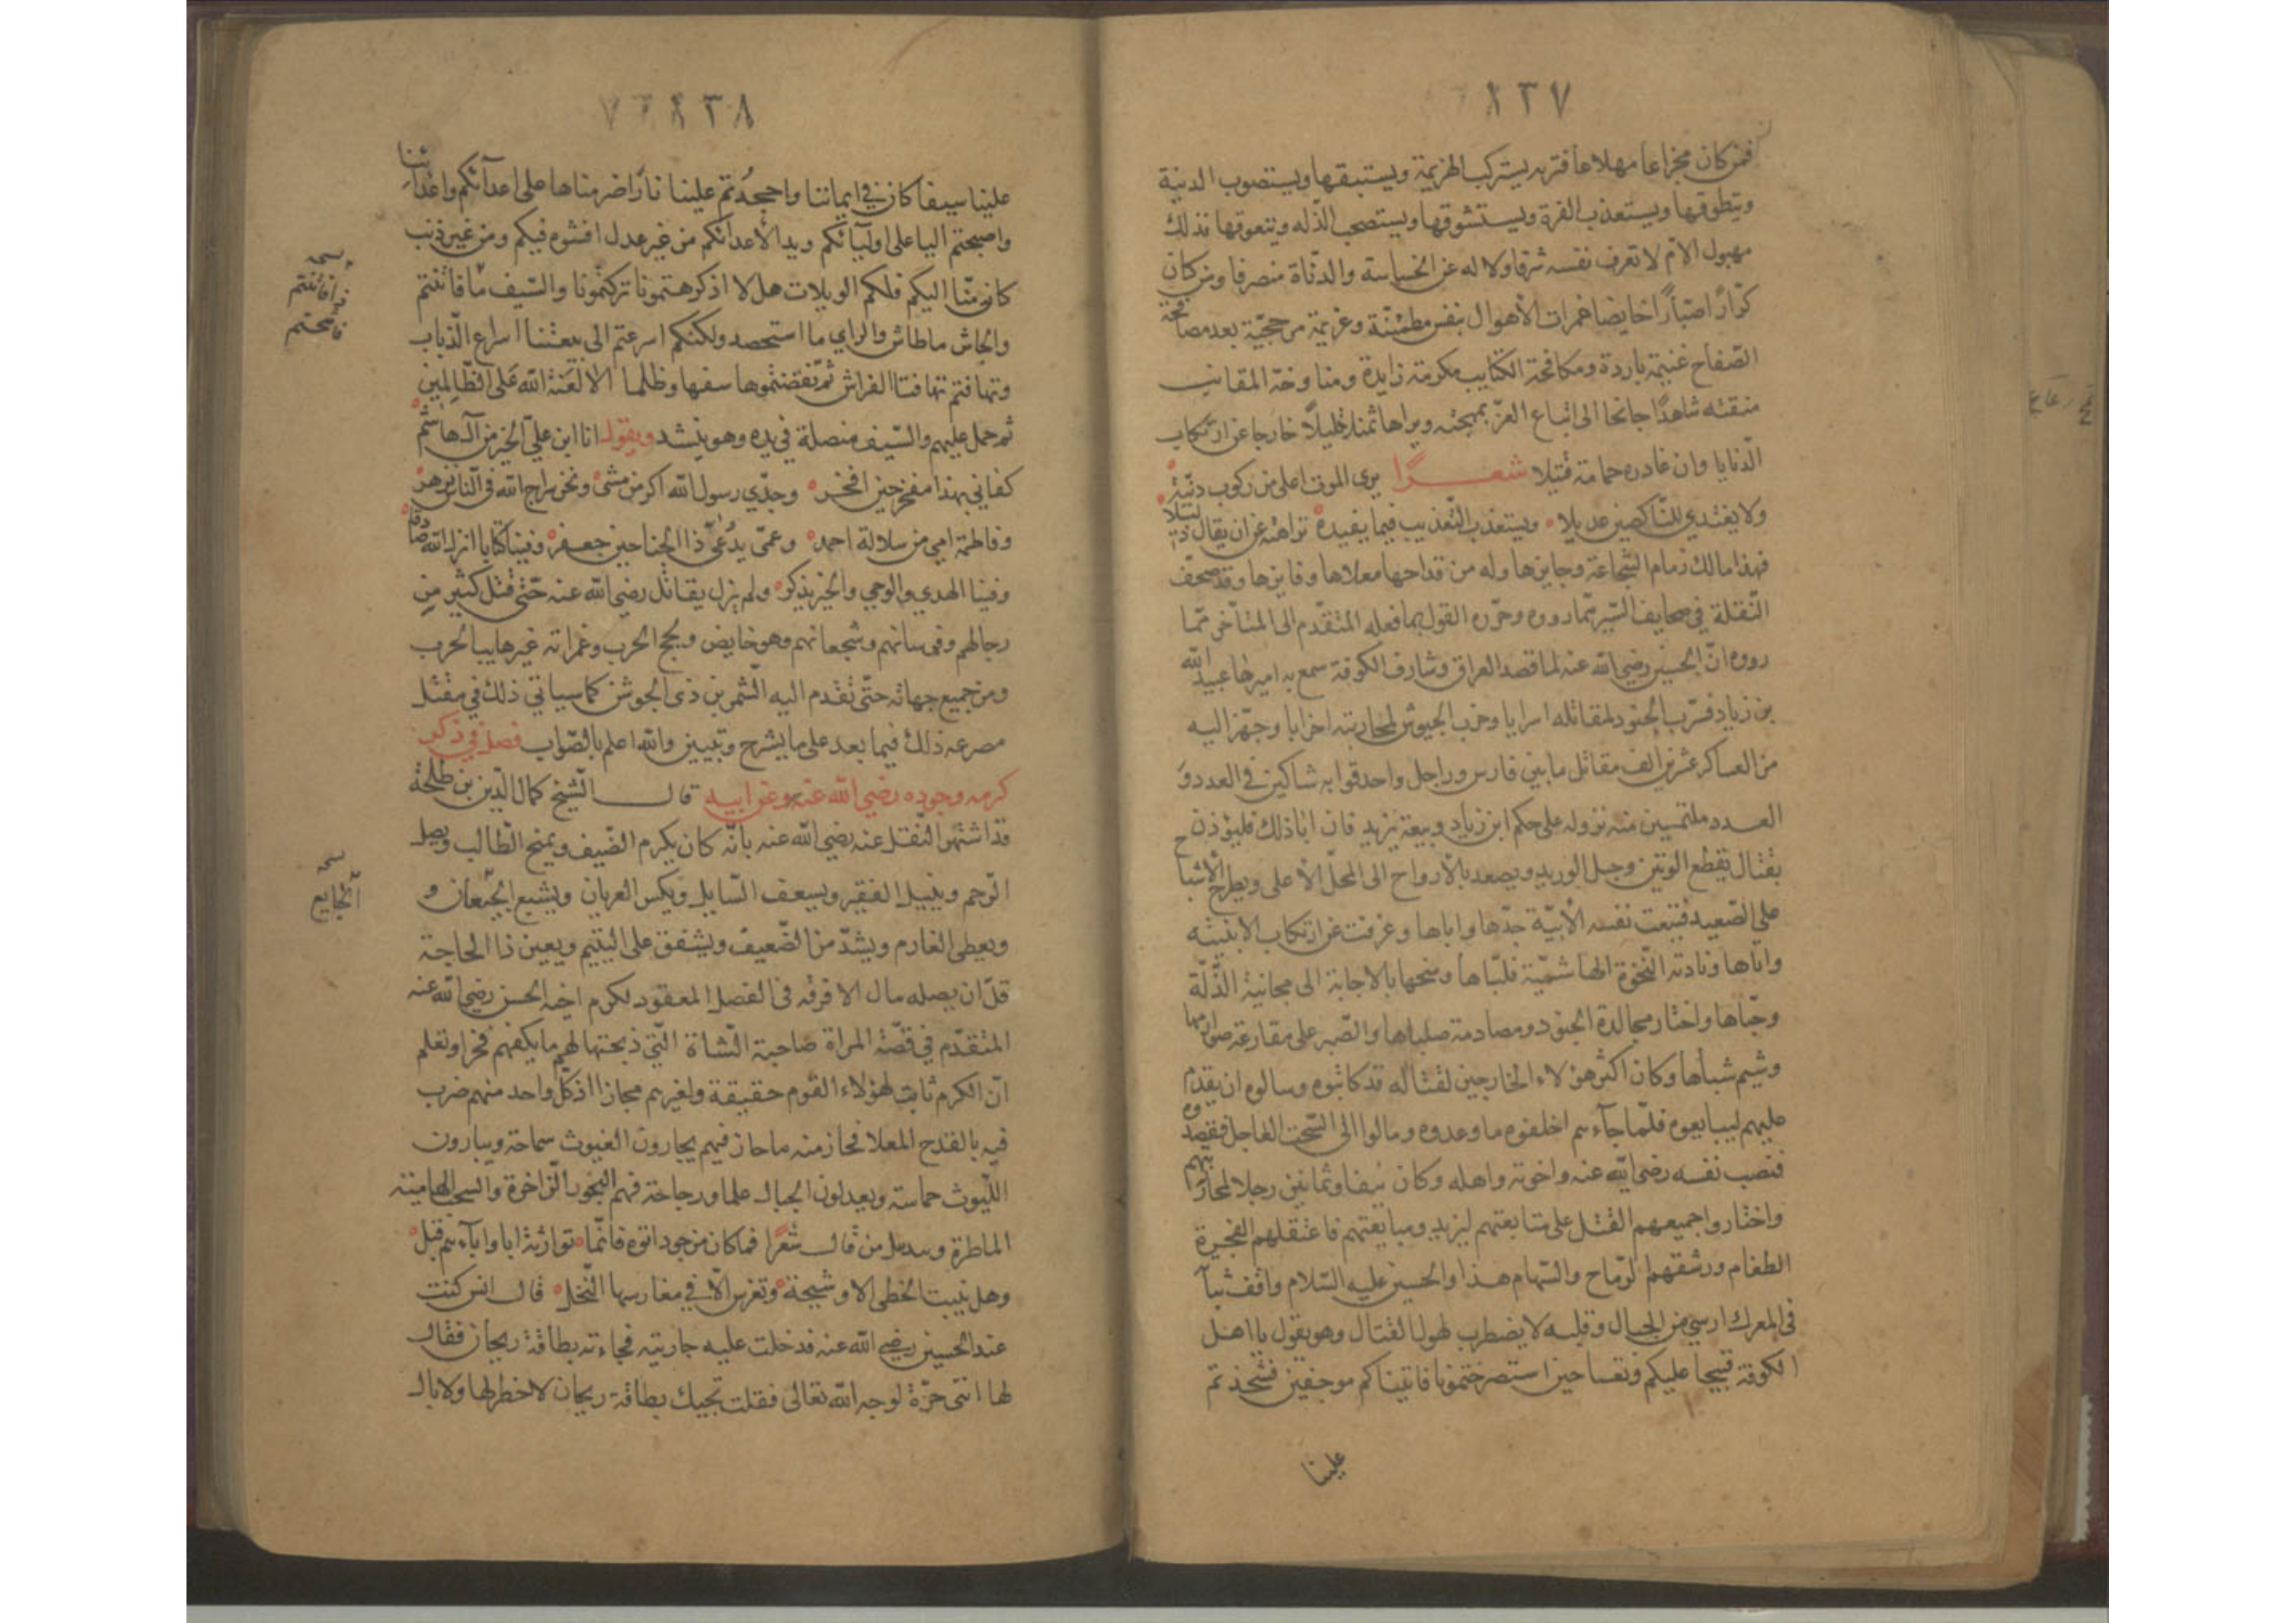 ١٣٧
فمن كان مجزاعا مهلاعا فتريه يستركب الهزيمة ويستبقها ويستصوب الدنية
ويتطوقها ويستعذب الفرة ويستشوقها ويستصحب الذله ويتعوقها فذلك
مهبول الام لا تعرف نفسه شرفا ولا له عن الخساسة والدناة منصرفا ومن كان
كرارا صبارا خايضا غمرات الأهوال بنفس مطمئنة وعزيمة مرجحية بعد مصافحة
الصفاح غنيمة باردة ومكافحة الكتايب مكرمة زايدة ومناوخة المقانب
منقبه شاهدا جانحا الى ابتياع العز بمهجته ويراها ثمنا قليلا خارجا عن ارتكاب
الدنايا وان غادره حمامة قتيلا شعــرا يرى الموت اعلى من ركوب دنية
ولا يغتدي للناكصين عديلا ويستعذب التعذيب فيما يفيده نزاهته عن ان يقال ذليلا
فهذا مالك زمام الشجاعة وجايزها وله من قداحها معلاها وفايزها وقد صحف
النقلة في صحايف السير مما رووه وحرره القول بما فعله المتقدم الى المتأخر مما
رووه ان الحسين رضي الله عنه لما قصد العراق وشارف الكوفة سمع به اميرها عبيد الله
بن زياد فسرب الجنود لمقاتله اسرايا وحزب الجيوش لمحاربته احزابا وجهز اليه
من العساكر عشرين الف مقاتل ما بين فارس وراجل واحدقوا به شاكين في العدد و
العدد ملتمسين منه نزوله على حكم ابن زياد وبيعة يزيد فان ابا ذلك فليؤذن
بقتال يقطع الوتين وحبل الوريد ويصعد بالارواح الى المحل الأعلى ويطرح الأشباح
على الصعيد فتبعت نفسه الأبية جدها واباها وعرفت عن ارتكاب الابنيئه
واباها ونادته النخوة الهاشمية فلباها ومنحها بالاجابة الى مجانبة الذلة
وحباها واختار مجالدة الجنود ومصادمة صلباها والصبر على مقارعة صوارمها
وشيم شباها وكان اكثر هؤلاء الخارجين لقتاله قد كاتبوه وسالوه ان يقدم
عليهم ليبايعوه فلما جآءهم اخلفوه ما وعدوه ومالوا الى السحت العاجل فقصدوه
فنصب نفسه رضي الله عنه واخوته واهله وكان نيفا وثمانين رجلا لمحاربتهم
واختاروا جميعهم القتل على متابعتهم ليزيد ومبايعتهم فاعتقلهم الفجرة
الطغام ورشقهم الرماح والسهام هذا والحسين عليه السلام واقف ثبتا
في المعرك ارسي من الجبال وقلبه لا يضطرب لهول القتال وهو يقول يا اهل
الكوفة قبيحا عليكم وتعسا حين استصرختمونا فاتيناكم موجفين فشحذتم
علينا
١٣٨
علينا سيفا كان في ايماننا واججدتم علينا نارا اضرمناها على اعدآئكم واعدائنا
واصبحتم البا على اوليائكم ويدا لأعدائكم من غير عدل افشوه فيكم ومن غير ذنب
كان منا اليكم فلكم الويلات هلا اذ كرهتمونا تركتمونا والسيف ما فاتتتم
والجاش ما طاش والراي ما استحصد ولكنكم اسرعتم الى بيعتنا اسراع الذباب
وتهافتم تهافت الفراش ثم نقضتموها سفها وظلما الا لعنة الله على الظالمين
ثم حمل عليهم والسيف منصلة في يده وهو ينشد ويقول انا ابن علي الخير من آل هاشم
كفاني بهذا مفخر حين افخر وجدي رسول الله اكرم من مشى ونحن سراج الله في الناس نزهر
وفاطمة امي من سلالة احمد وعمي يدعى ذا الجناحين جعفر وفينا كتابا انزل الله صادقا
وفينا الهدي والوحي والخير يذكر ولم يزل يقاتل رضي الله عنه حتى قتل كثير من
رجالهم وفرسانهم وشجعانهم وهو خايض ولجج الحرب وغمراته غير هايب الحرب
ومن جميع جهاته حتى تقدم اليه الشمر بن ذي الجوشن كما سياتي ذلك في مقتل
مصرعه ذلك فيما بعد على ما يشرح وتبيين والله اعلم بالصواب فصل في ذكر
كرمه وجوده رضي الله عنه وعن ابيه قال الشيخ كمال الدين بن طلحة
قد اشتهر النقل عنه رضي الله عنه بانه كان يكرم الضيف ويمنح الطالب ويصل
الرحم وينيل الفقير ويسعف السايل ويكسي العريان ويشبع الجيعان و
ويعطي الغارم ويشد من الضعيف ويشفق على اليتيم ويعين ذا الحاجة
قل ان يصله مال الا فرقه في الفصل المعقود لكرم اخيه الحسن رضي الله عنه
المتقدم في قصة المراة صاحبة الشاة التي ذبحتها لهم ما يكفهم فخرا وتعلم
ان الكرم ثابت لهؤلاء القوم حقيقة ولغيرهم مجازا اذ كل واحد منهم ضرب
فيه بالقدح المعلا فحاز منه ما حاز فيهم يجارون الغيوث سماحة ويبارون
الليوث حماسة ويعدلون الجبال علما ورجاحة فهم البحور الزاخرة والسحب الهامية
الماطرة من قال شعرا فما كان من جود اتوه فانما توارثه ابا وآبآءهم قبل
وهل ينبت الخطى الا وشيجة وتغرس الا في مغارسها النخل قال انس كنت
عند الحسين رضي الله عنه فدخلت عليه جاريته فجاءته بطاقة ريحان فقال
لها انتي حرة لوجه الله تعالى فقلت تجيك بطاقة ريحان لا خطر لها ولا بال
الجايع